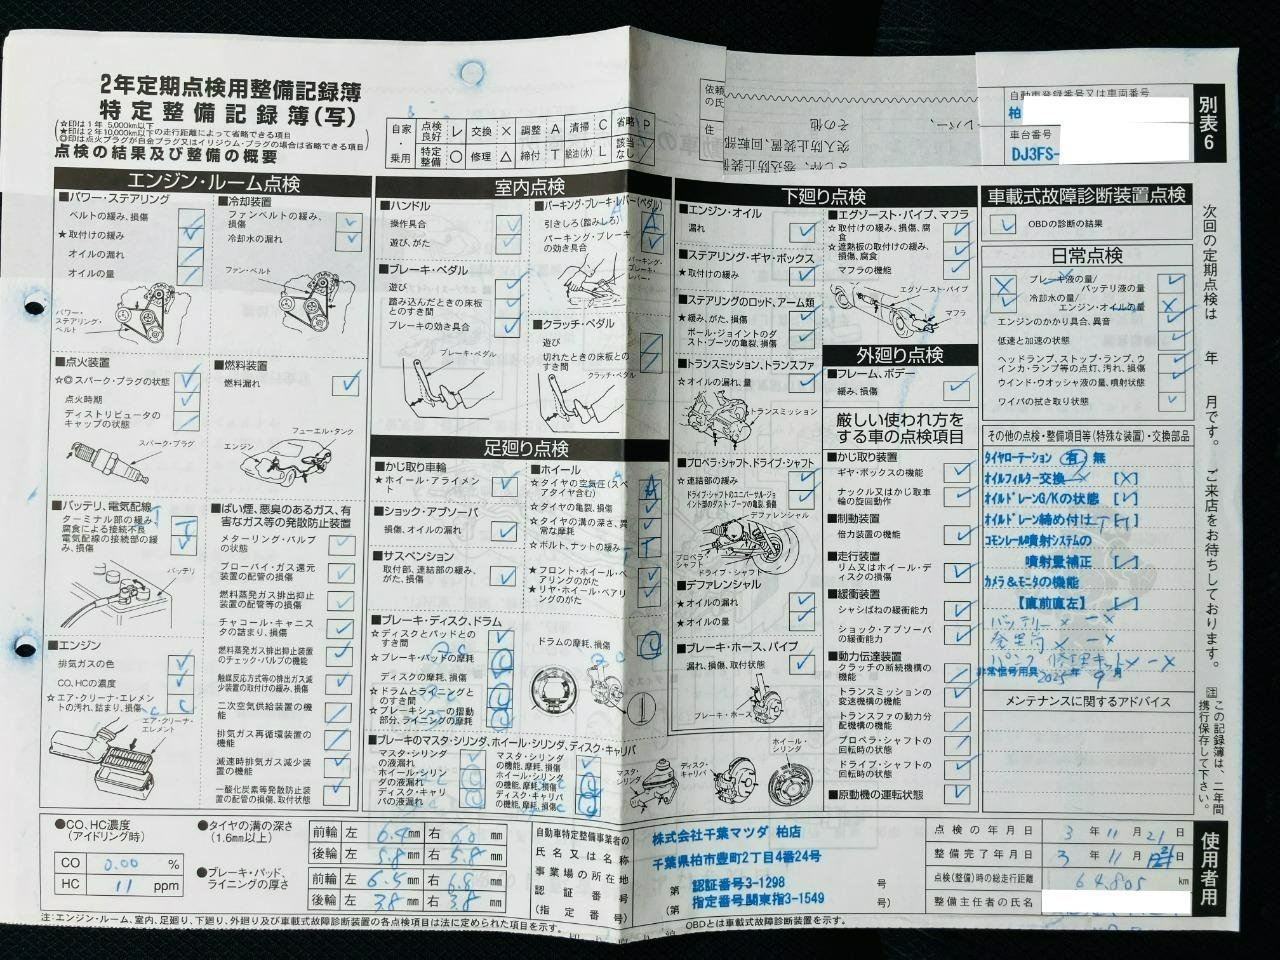 2年定期点検用整備記録簿
特定整備記録簿(写)
☆印は1年 5,000km以下
★印は2年10,000km以下の走行距離によって省略できる項目
◎印は点火プラグが白金プラグ又はイリジウム・プラグの場合は省略できる項目
点検の結果及び整備の概要
自家・乗用
点検良好 レ 交換 × 調整 A 清掃 C 省略 P
特定整備 ○ 修理 △ 締付 T 給油(水) L 該当なし
自動車登録番号又は車両番号
柏
車台番号
DJ3FS-
別表6
エンジン・ルーム点検
■パワー・ステアリング
ベルトの緩み、損傷
★取付けの緩み
オイルの漏れ
オイルの量
パワー・ステアリング・ベルト
■冷却装置
ファンベルトの緩み、損傷
冷却水の漏れ
ファン・ベルト
■点火装置
☆◎スパーク・プラグの状態
点火時期
ディストリビュータのキャップの状態
スパーク・プラグ
■燃料装置
燃料漏れ
フューエル・タンク
エンジン
■バッテリ、電気配線
ターミナル部の緩み、腐食による接続不良
電気配線の接続部の緩み、損傷
バッテリ
■ばい煙、悪臭のあるガス、有害なガス等の発散防止装置
メターリング・バルブの状態
ブローバイ・ガス還元装置の配管の損傷
燃料蒸発ガス排出抑止装置の配管等の損傷
チャコール・キャニスタの詰まり、損傷
燃料蒸発ガス排出抑止装置のチェック・バルブの機能
触媒反応方式等の排出ガス減少装置の取付けの緩み、損傷
二次空気供給装置の機能
排気ガス再循環装置の機能
減速時排気ガス減少装置の機能
一酸化炭素等発散防止装置の配管の損傷、取付状態
■エンジン
排気ガスの色
CO、HCの濃度
☆エア・クリーナ・エレメントの汚れ、詰まり、損傷
エア・クリーナ・エレメント
室内点検
■ハンドル
操作具合
遊び、がた
■ブレーキ・ペダル
遊び
踏み込んだときの床板とのすき間
ブレーキの効き具合
ブレーキ・ペダル
■パーキング・ブレーキ・レバー(ペダル)
引きしろ(踏みしろ)
パーキング・ブレーキの効き具合
パーキング・ブレーキ・レバー
■クラッチ・ペダル
遊び
切れたときの床板とのすき間
クラッチ・ペダル
足廻り点検
■かじ取り車輪
★ホイール・アライメント
■ショック・アブソーバ
損傷、オイルの漏れ
■サスペンション
取付部、連結部の緩み、がた、損傷
■ホイール
☆タイヤの空気圧(スペアタイヤ含む)
☆タイヤの亀裂、損傷
☆タイヤの溝の深さ、異常な摩耗
☆ボルト、ナットの緩み
★フロント・ホイール・ベアリングのがた
★リヤ・ホイール・ベアリングのがた
■ブレーキ・ディスク、ドラム
☆ディスクとパッドとのすき間
☆ブレーキ・パッドの摩耗
ディスクの摩耗、損傷
☆ドラムとライニングとのすき間
☆ブレーキシューの摺動部分、ライニングの摩耗
ドラムの摩耗、損傷
■ブレーキのマスタ・シリンダ、ホイール・シリンダ、ディスク・キャリパ
マスタ・シリンダの液漏れ
ホイール・シリンダの液漏れ
ディスク・キャリパの液漏れ
マスタ・シリンダの機能、摩耗、損傷
ホイール・シリンダの機能、摩耗、損傷
ディスク・キャリパの機能、摩耗、損傷
マスタ・シリンダ
ディスク・キャリパ
ホイール・シリンダ
下廻り点検
■エンジン・オイル
漏れ
■ステアリング・ギヤ・ボックス
★取付けの緩み
■ステアリングのロッド、アーム類
★緩み、がた、損傷
ボール・ジョイントのダスト・ブーツの亀裂、損傷
■トランスミッション、トランスファ
☆オイルの漏れ、量
トランスミッション
■プロペラ・シャフト、ドライブ・シャフト
☆連結部の緩み
ドライブ・シャフトのユニバーサル・ジョイント部のダスト・ブーツの亀裂、損傷
デファレンシャル
プロペラ・シャフト
ドライブ・シャフト
■デファレンシャル
★オイルの漏れ
★オイルの量
■ブレーキ・ホース、パイプ
漏れ、損傷、取付状態
ブレーキ・ホース
■エグゾースト・パイプ、マフラ
☆取付けの緩み、損傷、腐食
☆遮熱板の取付けの緩み、損傷、腐食
マフラの機能
エグゾースト・パイプ
マフラ
外廻り点検
■フレーム、ボデー
緩み、損傷
厳しい使われ方をする車の点検項目
■かじ取り装置
ギヤ・ボックスの機能
ナックル又はかじ取車輪の旋回動作
■制動装置
倍力装置の機能
■走行装置
リム又はホイール・ディスクの損傷
■緩衝装置
シャシばねの緩衝能力
ショック・アブソーバの緩衝能力
■動力伝達装置
クラッチの断続機構の機能
トランスミッションの変速機構の機能
トランスファの動力分配機構の機能
プロペラ・シャフトの回転時の状態
ドライブ・シャフトの回転時の状態
■原動機の運転状態
車載式故障診断装置点検
OBDの診断の結果
日常点検
ブレーキ液の量/バッテリ液の量
冷却水の量/エンジン・オイルの量
エンジンのかかり具合、異音
低速と加速の状態
ヘッドランプ、ストップ・ランプ、ウインカ・ランプ等の点灯、汚れ、損傷
ウインド・ウオッシャ液の量、噴射状態
ワイパの拭き取り状態
その他の点検・整備項目等(特殊な装置)・交換部品
タイヤローテーション 有・無
オイルフィルター交換 [×]
オイルドレーンG/Kの状態 [レ]
オイルドレーン締め付け T [T]
コモンレール噴射システムの
噴射量補正 [レ]
カメラ&モニタの機能
【直前直左】 [レ]
バッテリー × -×
発煙筒 × -×
パンク修理キット × -×
非常信号用具 2025年 9月
メンテナンスに関するアドバイス
次回の定期点検は 年 月です。ご来店をお待ちしております。
注 この記録簿は、二年間携行保存して下さい。
使用者用
●CO、HC濃度(アイドリング時)
CO 0.00 %
HC 11 ppm
●タイヤの溝の深さ(1.6mm以上)
前輪 左 6.4 mm 右 6.0 mm
後輪 左 5.8 mm 右 5.8 mm
●ブレーキ・パッド、ライニングの厚さ
前輪 左 6.5 mm 右 6.8 mm
後輪 左 3.8 mm 右 3.8 mm
自動車特定整備事業者の氏名又は名称
事業場の所在地
認証番号
(指定番号)
株式会社千葉マツダ 柏店
千葉県柏市豊町2丁目4番24号
第 認証番号3-1298 号
(第 指定番号関東指3-1549 号)
点検の年月日 3年 11月 21日
整備完了年月日 3年 11月 21日
点検(整備)時の総走行距離 64,805 km
整備主任者の氏名
注:エンジン・ルーム、室内、足廻り、下廻り、外廻り及び車載式故障診断装置の各点検項目は法に定められた項目を示す。
OBDとは車載式故障診断装置を示す。